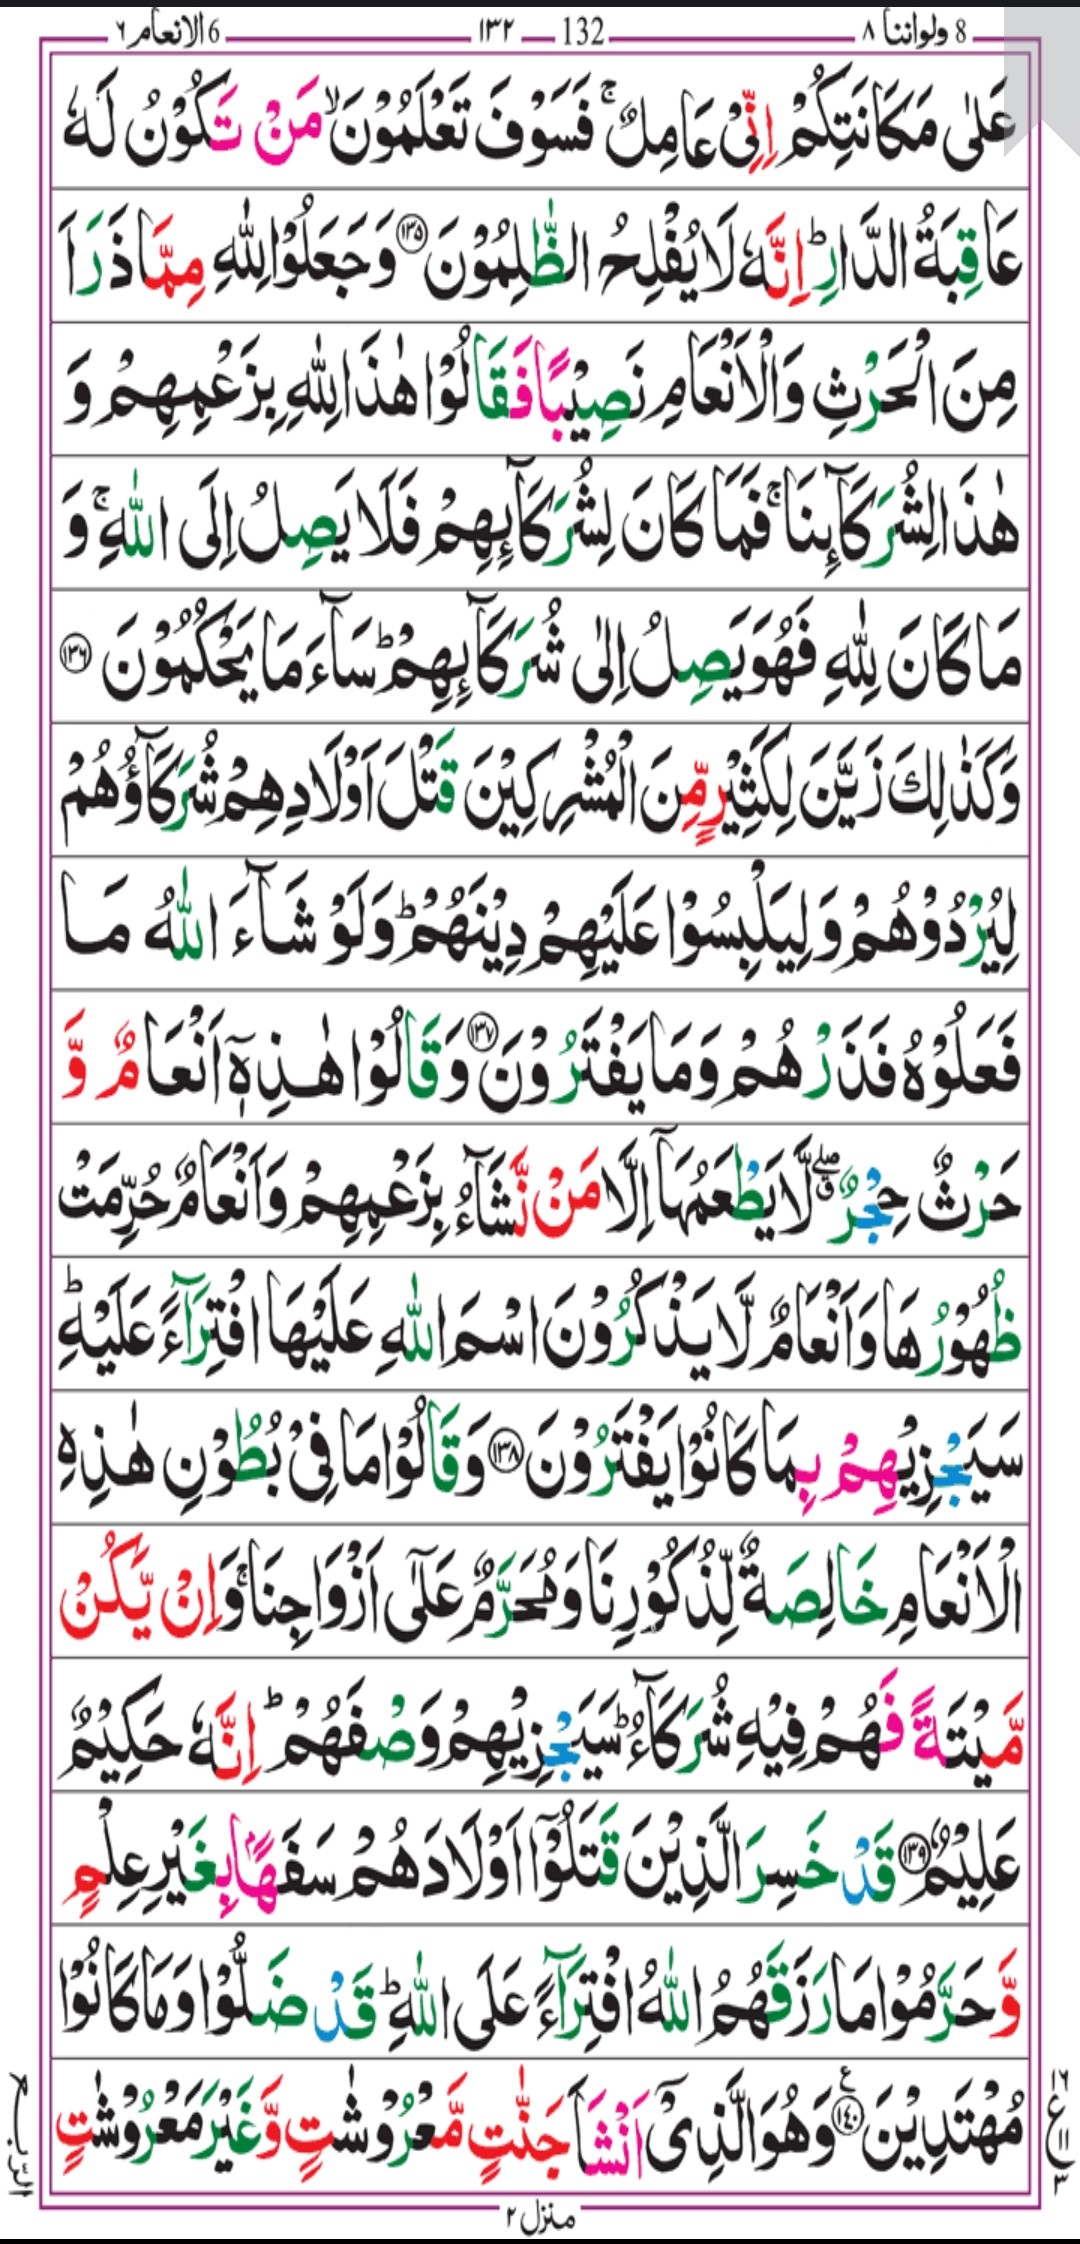 8 ولواننا ۸ 132 ۱۳۲ 6 الانعام ۶
عَلٰى مَكَانَتِكُمْ اِنِّىْ عَامِلٌ ۚ فَسَوْفَ تَعْلَمُوْنَ ۙ مَنْ تَكُوْنُ لَهٗ
عَاقِبَةُ الدَّارِ ؕ اِنَّهٗ لَا يُفْلِحُ الظّٰلِمُوْنَ ۝۱۳۵ وَجَعَلُوْا لِلّٰهِ مِمَّا ذَرَاَ
مِنَ الْحَرْثِ وَالْاَنْعَامِ نَصِيْبًا فَقَالُوْا هٰذَا لِلّٰهِ بِزَعْمِهِمْ وَ
هٰذَا لِشُرَكَآئِنَا ۚ فَمَا كَانَ لِشُرَكَآئِهِمْ فَلَا يَصِلُ اِلَى اللّٰهِ ۚ وَ
مَا كَانَ لِلّٰهِ فَهُوَ يَصِلُ اِلٰى شُرَكَآئِهِمْ ؕ سَآءَ مَا يَحْكُمُوْنَ ۝۱۳۶
وَكَذٰلِكَ زَيَّنَ لِكَثِيْرٍ مِّنَ الْمُشْرِكِيْنَ قَتْلَ اَوْلَادِهِمْ شُرَكَآؤُهُمْ
لِيُرْدُوْهُمْ وَلِيَلْبِسُوْا عَلَيْهِمْ دِيْنَهُمْ ؕ وَلَوْ شَآءَ اللّٰهُ مَا
فَعَلُوْهُ فَذَرْهُمْ وَمَا يَفْتَرُوْنَ ۝۱۳۷ وَقَالُوْا هٰذِهٖۤ اَنْعَامٌ وَّ
حَرْثٌ حِجْرٌ ۖۗ لَّا يَطْعَمُهَاۤ اِلَّا مَنْ نَّشَآءُ بِزَعْمِهِمْ وَاَنْعَامٌ حُرِّمَتْ
ظُهُوْرُهَا وَاَنْعَامٌ لَّا يَذْكُرُوْنَ اسْمَ اللّٰهِ عَلَيْهَا افْتِرَآءً عَلَيْهِ ؕ
سَيَجْزِيْهِمْ بِمَا كَانُوْا يَفْتَرُوْنَ ۝۱۳۸ وَقَالُوْا مَا فِىْ بُطُوْنِ هٰذِهِ
الْاَنْعَامِ خَالِصَةٌ لِّذُكُوْرِنَا وَمُحَرَّمٌ عَلٰٓى اَزْوَاجِنَا ۚ وَاِنْ يَّكُنْ
مَّيْتَةً فَهُمْ فِيْهِ شُرَكَآءُ ؕ سَيَجْزِيْهِمْ وَصْفَهُمْ ؕ اِنَّهٗ حَكِيْمٌ
عَلِيْمٌ ۝۱۳۹ قَدْ خَسِرَ الَّذِيْنَ قَتَلُوْۤا اَوْلَادَهُمْ سَفَهًۢا بِغَيْرِ عِلْمٍ
وَّحَرَّمُوْا مَا رَزَقَهُمُ اللّٰهُ افْتِرَآءً عَلَى اللّٰهِ ؕ قَدْ ضَلُّوْا وَمَا كَانُوْا
مُهْتَدِيْنَ ۝۱۴۰ ع وَهُوَ الَّذِىْۤ اَنْشَاَ جَنّٰتٍ مَّعْرُوْشٰتٍ وَّغَيْرَ مَعْرُوْشٰتٍ
۱۶ ع ۱۱ ۳
الربع
منزل ۲